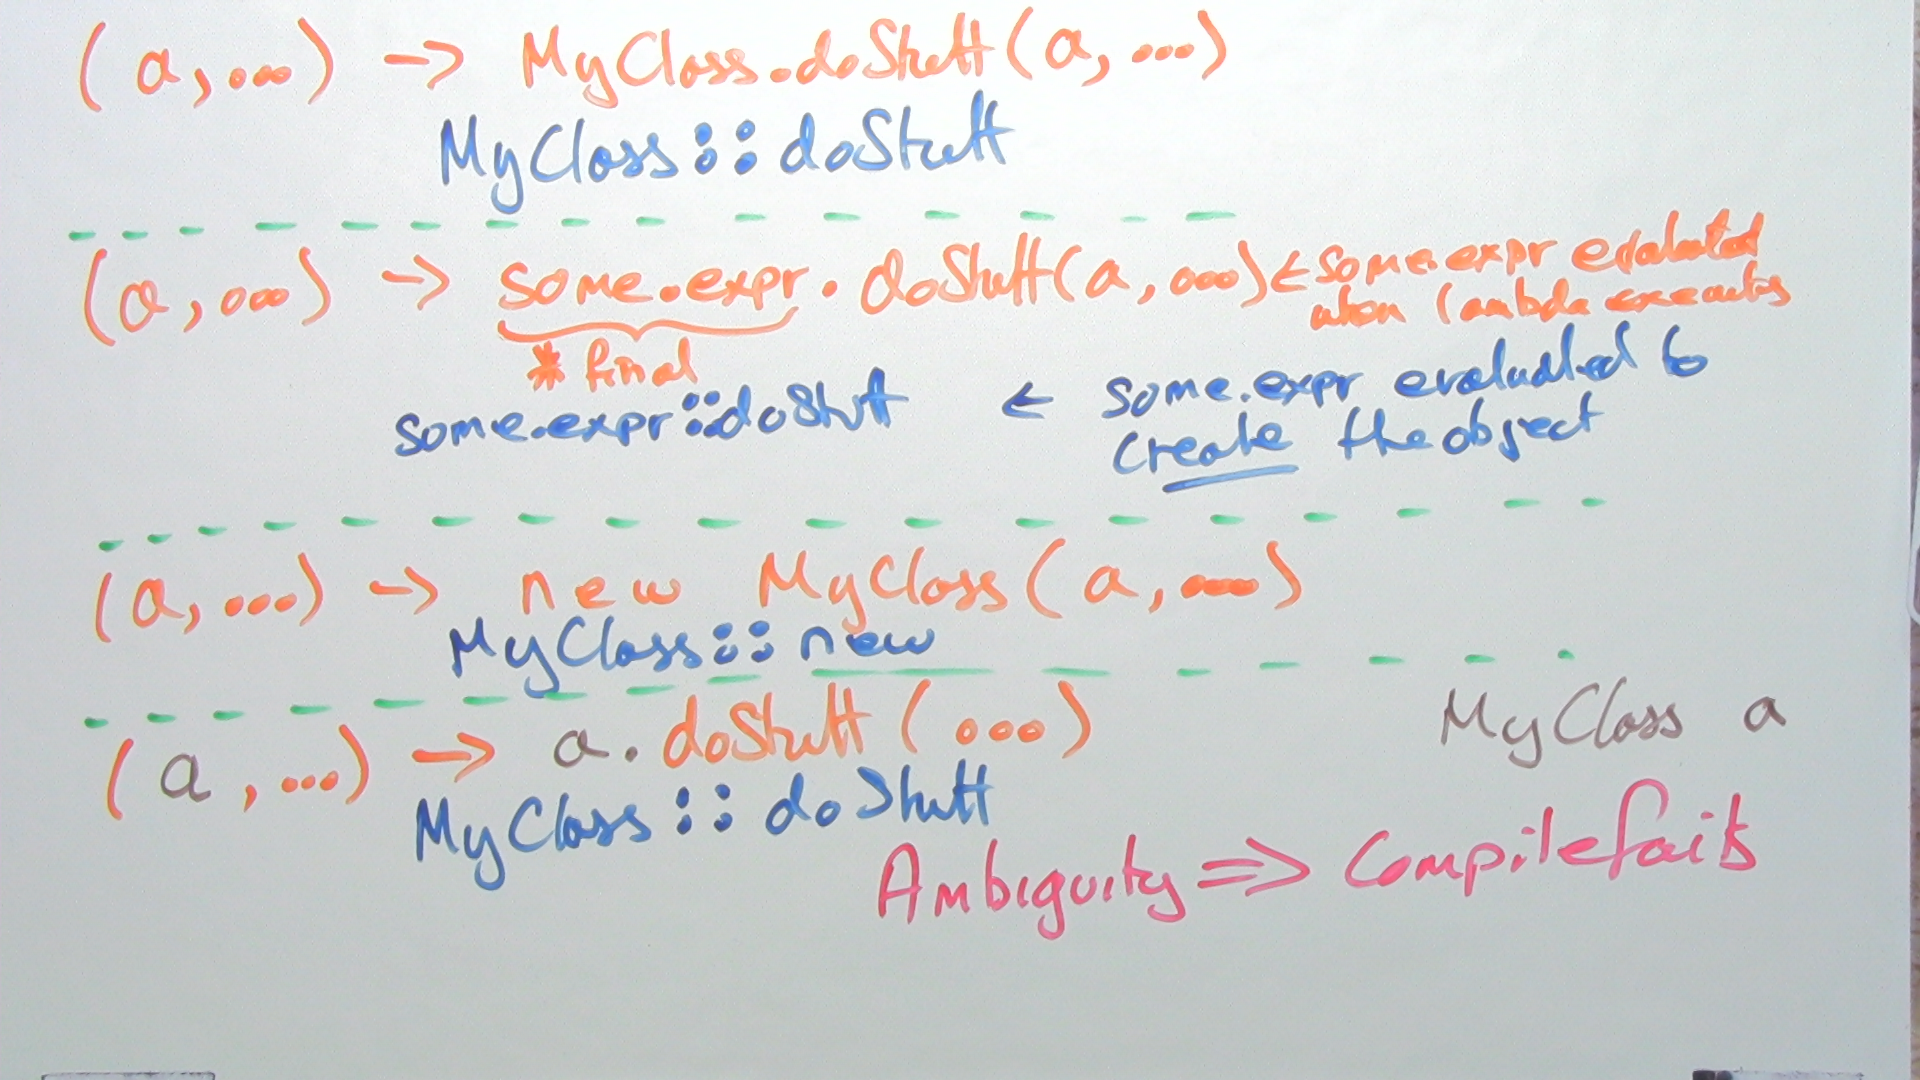 (a, ...) -> MyClass.doStuff(a, ...)
MyClass::doStuff
(a, ...) -> some.expr.doStuff(a, ...) ← some.expr evaluated
when lambda executes
* final
some.expr::doStuff ← some.expr evaluated to
create the object
(a, ...) -> new MyClass(a, ...)
MyClass::new
(a, ...) -> a.doStuff(...) MyClass a
MyClass::doStuff
Ambiguity => Compile fails